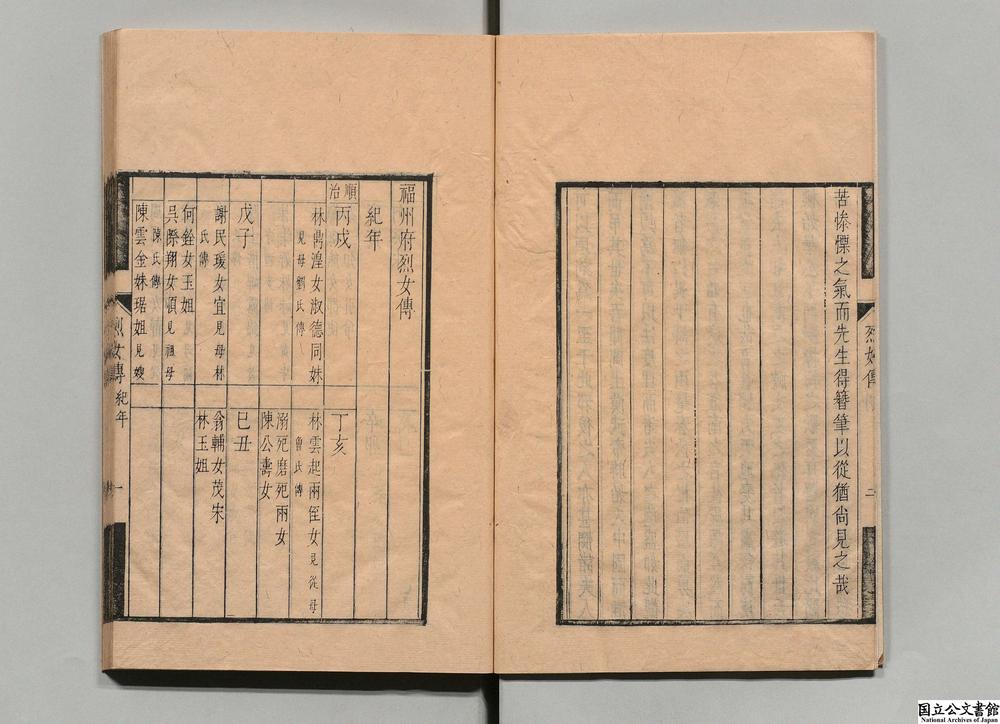 苦慘慄之氣而先生得簪筆以從猶尙見之哉
烈女傳
二
福州府烈女傳
紀年
順治
丙戌
林喬湟女淑德同妹
見母劉氏傳
戊子
謝民瑗女宜見母林
氏傳
何銓女玉姐
吳際翔女順見祖母
陳氏傳
陳雲金妹琚姐見嫂
丁亥
林雲起兩侄女見從母
曾氏傳
溺死磨死兩女
陳公壽女
己丑
翁輔女茂宋
林玉姐
烈女傳
紀年
一
国立公文書館
National Archives of Japan